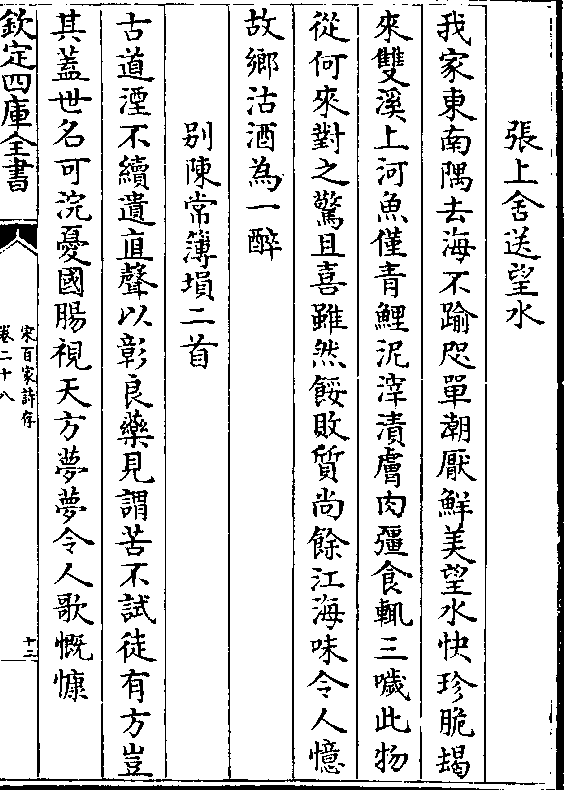 張上舍送望水
我家東南隅去海不踰咫單潮厭鮮美望水快珍脆朅
來雙溪上河魚僅青鯉泥滓漬膚肉彊食輒三噦此物
從何來對之驚且喜雖然餒敗質尚餘江海味令人憶
故鄉沽酒為一醉
别陳常簿塤二首
古道湮不續遺直聲以彰良藥見謂苦不試徒有方豈
其蓋世名可浣憂國腸視天方夢夢令人歌慨慷
欽定四庫全書
宋百家詩存
卷二十八
十三